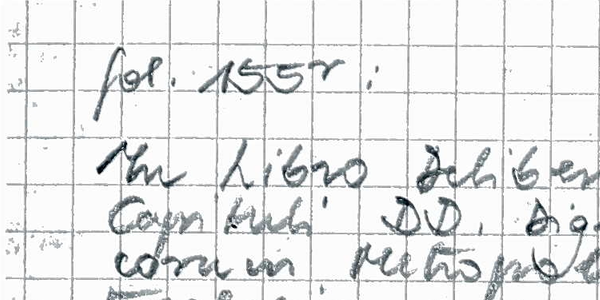 fol. 155r:
In Libro Deliber
Capituli DD. Dig
corum Metropol